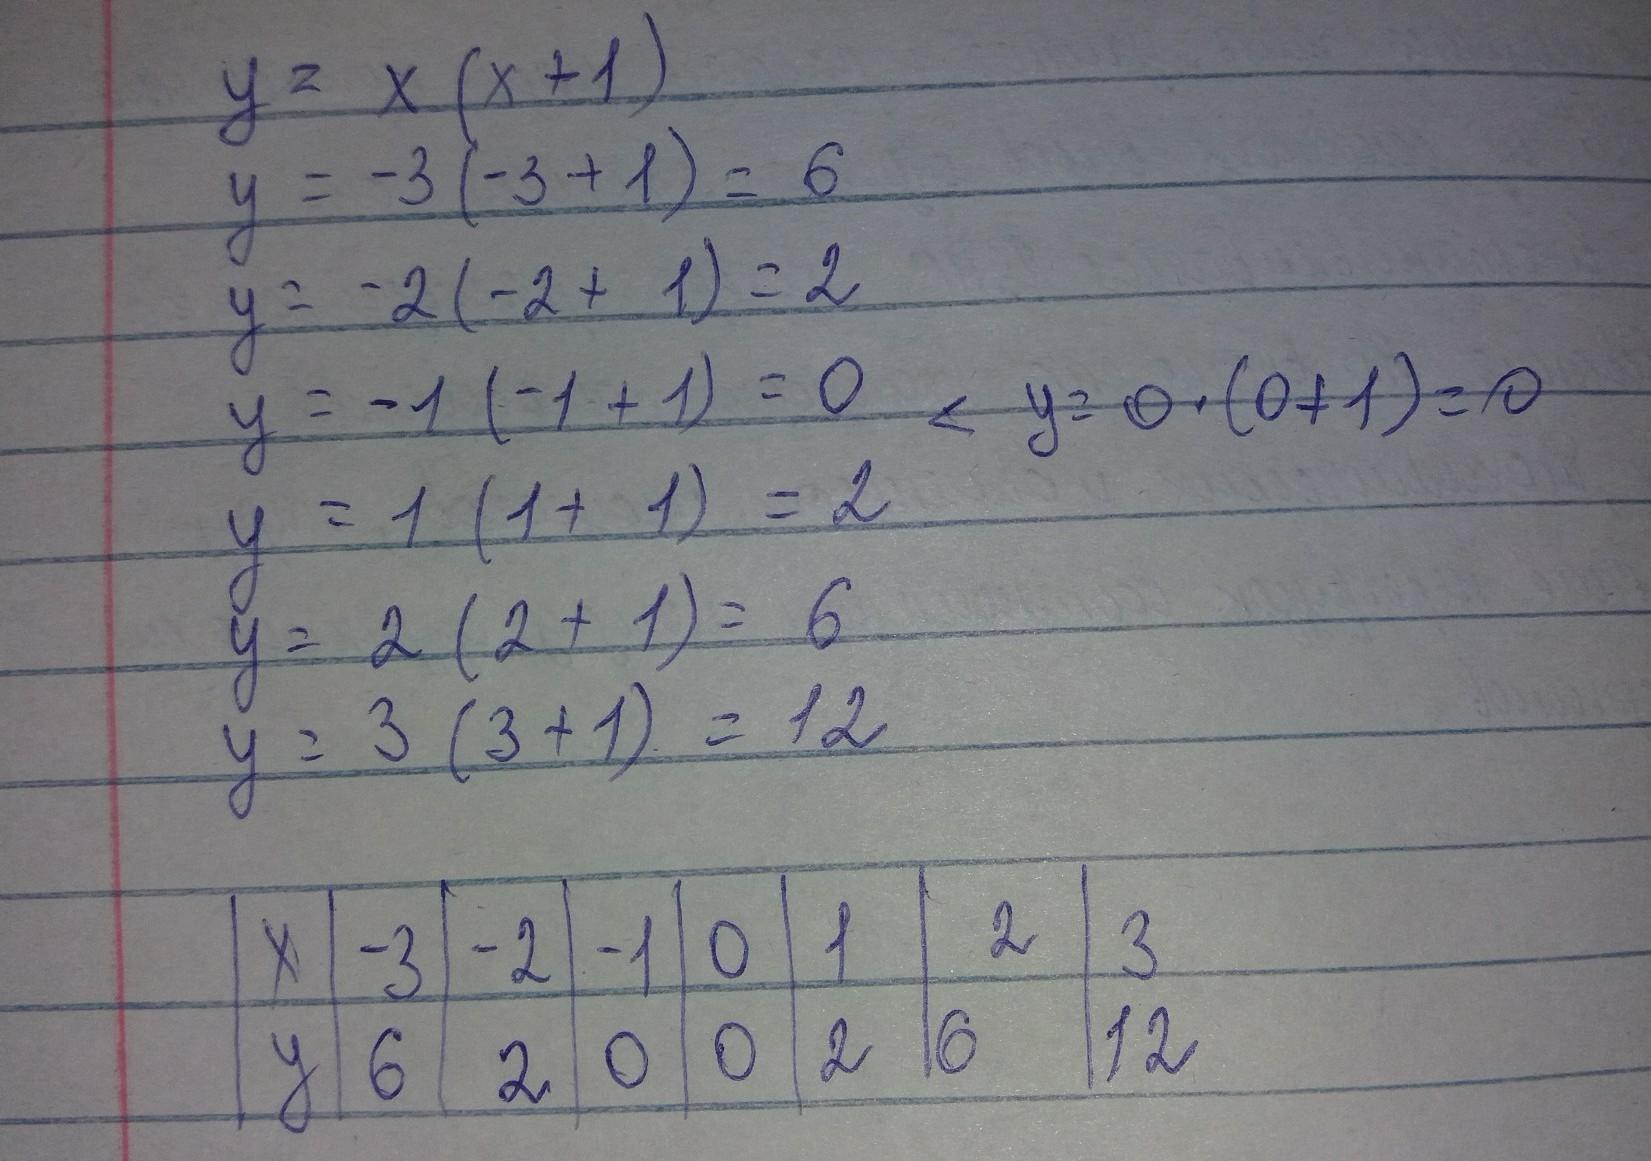 y = x (x + 1)
y = -3 (-3 + 1) = 6
y = -2 (-2 + 1) = 2
y = -1 (-1 + 1) = 0 < y = 0 · (0 + 1) = 0
y = 1 (1 + 1) = 2
y = 2 (2 + 1) = 6
y = 3 (3 + 1) = 12
x | -3 | -2 | -1 | 0 | 1 | 2 | 3
y | 6 | 2 | 0 | 0 | 2 | 6 | 12